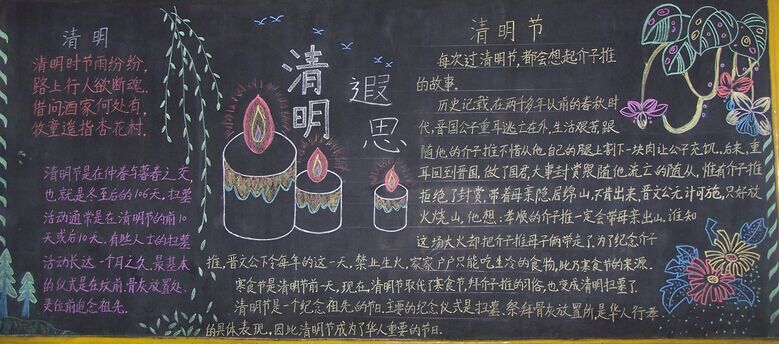 清明
清明时节雨纷纷,
路上行人欲断魂.
借问酒家何处有,
牧童遥指杏花村.
清明节是在仲春与暮春之交,
也就是冬至后的106天,扫墓
活动通常是在清明节的前10
天或后10天.有些人士的扫墓
活动长达一个月之久.最基本
的仪式是在坟前、骨灰放置处、
灵位前追念先祖.
清明
遐思
清明节
每次过清明节,都会想起介子推
的故事.
历史记载,在两千多年以前的春秋时
代,晋国公子重耳逃亡在外,生活艰苦,跟
随他的介子推不惜从他自己的腿上割下一块肉让公子充饥.后来,重
耳回到晋国,做了国君,大事封赏所有随他流亡的随从,惟有介子推
拒绝了封赏,带着母亲隐居绵山,不肯出来,晋文公无计可施,只好放
火烧山,他想:孝顺的介子推一定会带母亲出山.谁知
这场大火却把介子推母子俩带走了,为了纪念介子
推,晋文公下令每年的这一天,禁止生火,家家户户只能吃生冷的食物,此乃寒食节的来源.
寒食节是清明节前一天,现在,清明节取代了寒食节,拜介子推的习俗,也变成清明扫墓了.
清明节是一个纪念祖先的节日.主要的纪念仪式是扫墓.祭拜骨灰放置所,是华人行孝
的具体表现,因此清明节成为了华人重要的节日.